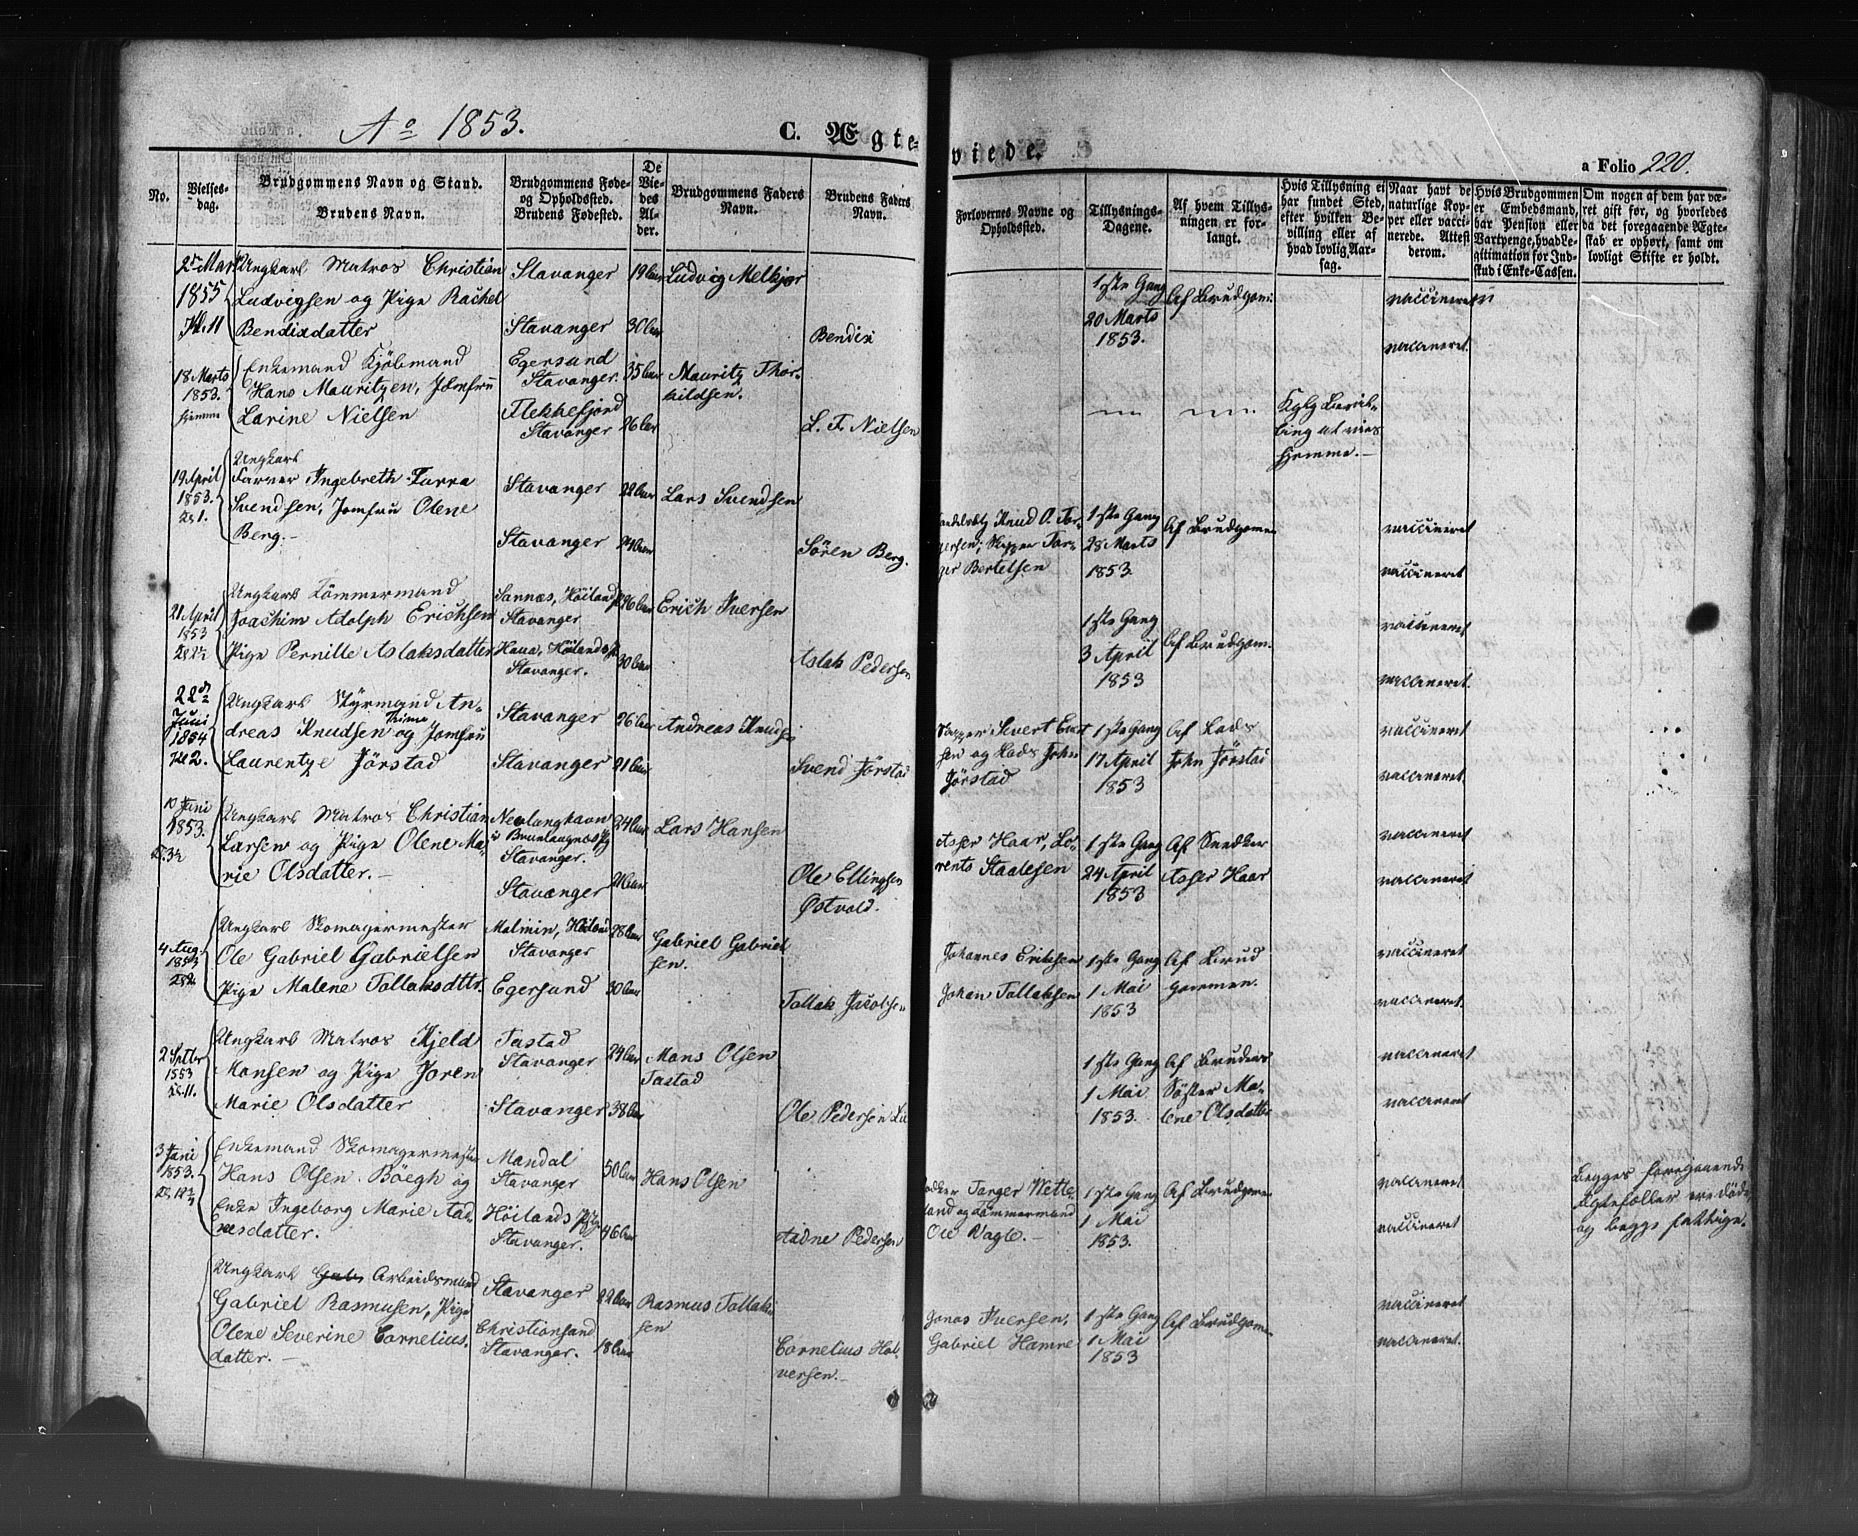 Ao 1853.
C. Ægte-
viede.
a Folio 220.
No.
Vielses-
dag.
Brudgommens Navn og Stand.
Brudens Navn.
Brudgommens Føde-
og Opholdssted.
Brudens Fødested.
De
Vie-
des
Al-
der.
Brudgommens Faders
Navn.
Brudens Faders
Navn.
Forlovernes Navne og
Opholdssted.
Tillysnings-
Dagene.
Af hvem Tillys-
ningen er for-
langt.
Hvis Tillysning ei
har fundet Sted,
efter hvilken Be-
villing eller af
hvad lovlig Aar-
sag.
Naar havt de
naturlige Kop-
per eller vacci-
nerede. Attest
derom.
Hvis Brudgommen
er Embedsmand,
har Pension eller
Vartpenge, hvad Le-
gitimation for Ind-
skud i Enke-Cassen.
Om nogen af dem har væ-
ret gift før, og hvorledes
da det foregaaende Ægte-
skab er ophørt, samt om
lovligt Skifte er holdt.
1855
Ungkarl Matros Christian
Ludvigsen og Pige Rachel
Bendixdatter
Stavanger
Stavanger
19 Aar
30 Aar
Ludvig Melkjor
Bendix
1ste Gang
20 Marts
1853.
Af Brudgom.
vaccineret
vaccineret.
18 Marts
1853.
hjemme
Enkemand Kjøbmand
Hans Mauritzen, Jomfru
Larine Nielsen
Egersund
Stavanger.
Flekkefjord
Stavanger
35 Aar
26 Aar
Mauritz Thor-
kildsen.
L. F. Nielsen
Kglg Bevil-
ling at vies
hjemme.-
19 April
1853.
Ungkarl
Farver Ingebreth Furra
Svendsen, Jomfru Olene
Berg.-
Stavanger
Stavanger
22 Aar
24 Aar
Lars Svendsen
Søren Berg.
Knud O. Tor-
gersen, Skipper Tor-
ger Bertelsen
1ste Gang
28 Marts
1853.
Af Brudgommen
vaccineret
vaccineret
21 April
1853
Ungkarl Tømmermand
Joachim Adolph Erichsen
Pige Pernille Aslaksdatter
Sannæs, Høiland
Stavanger
Hana, Høilands
Stavanger.
26 Aar
30 Aar
Erich Iversen
Aslak Pedersen
1ste Gang
3 April
1853
Af Brudgom.
vaccineret
vaccineret.
22de
Juni
1854
Ungkarl Styrmand An-
dreas Knudsen og Jomfru
Laurentze Jørstad
Stavanger
Stavanger
26 Aar
21 Aar
Andreas Knudsen
Svend Jørstad
Skipper Sivert Evert
sen og Lods John
Jørstad
1ste Gang
17 April
1853
Af Lods
John Jørstad
vaccineret
vaccineret
10 Juni
1853.
Ungkarl Matros Christian
Larsen og Pige Olene Ma-
rie Olsdatter.-
Nevlunghavn
i Brunlaugnæs Pg
Stavanger.
Stavanger
24 Aar
21 Aar
Lars Hansen
Ole Ellingsen
Østvold.
Asser Haar, Lo-
rents Staalesen
1ste Gang
24 April
1853
Af Snedker
Asser Haar
vaccineret
vaccineret
4 Aug.
1853
Ungkarl Skomagermester
Ole Gabriel Gabrielsen
Pige Malene Tollaksdttr.
Malmin, Høiland
Stavanger
Egersund
28 Aar
30 Aar
Gabriel Gabriel
sen.
Tollak Jacobsen
Johannes Eriksen
Johan Tollaksen
1ste Gang
1 Mai
1853
Af Brud
gommen.
vaccineret
vaccineret.
2 Septbr
1853
Ungkarl Matros Kjeld
Monsen og Pige Joren
Marie Olsdatter
Tastad
Stavanger
Stavanger
24 Aar
38 Aar
Mons Olsen
Tastad
Ole Pedersen
1ste Gang
1 Mai
1853.
Af Brudens
Søster Ma-
lene Olsdatter
vaccineret
vaccineret
3 Juni
1853.
Enkemand Skomagermester
Hans Olsen Böegh og
Enke Ingeborg Marie Aad-
nesdatter.
Mandal
Stavanger
Høilands
Stavanger.
50 Aar
46 Aar
Hans Olsen
Aadne Pedersen
Tanger Wette-
land og Tømmermand
Ole Vagle.-
1ste Gang
1 Mai
1853.
Af Brudgommen
vaccineret
vaccineret
Begges foregaaende
Egtefæller ere døde,
og begge fattige.
Ungkarl Gab Arbeidsmand
Gabriel Rasmusen, Pige
Olene Severine Cornelius,
datter.-
Stavanger
Christiansand
Stavanger.
22 Aar
18 Aar
Rasmus Tollak-
sen
Cornelius Hal-
versen.-
Jonas Iversen,
Gabriel Hamre
1ste Gang
1 Mai
1853
Af Brudgommen
vaccineret
vaccineret.